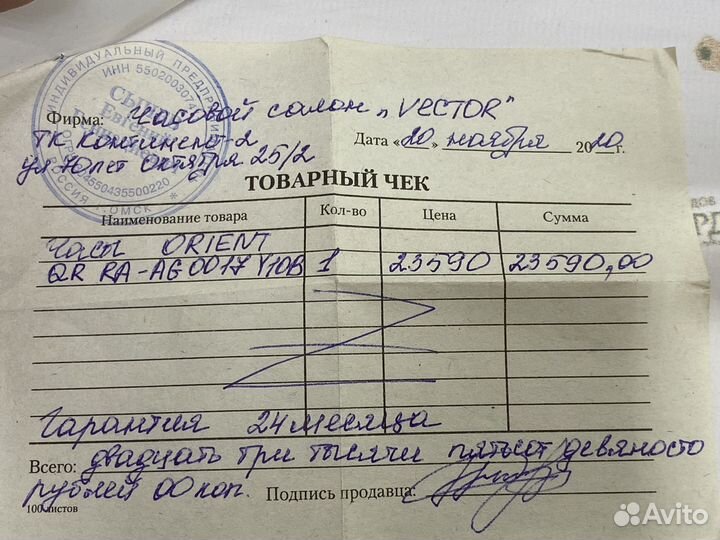 ИНДИВИДУАЛЬНЫЙ ПРЕДПРИ
ИНН 550200307
Евгений
РОССИЯ Г.ОМСК *
Фирма: Часовой салон „VECTOR"
ТК Континент-2
ул 70 лет Октября 25/2
Дата «20» ноября 2020 г.
ТОВАРНЫЙ ЧЕК
Наименование товара Кол-во Цена Сумма
Часы ORIENT
QR RA-AG0017Y10B 1 23590 23590,00
Гарантия 24 месяца
Всего: двадцать три тысячи пятьсот девяносто
рублей 00 коп. Подпись продавца:
100 листов
Avito